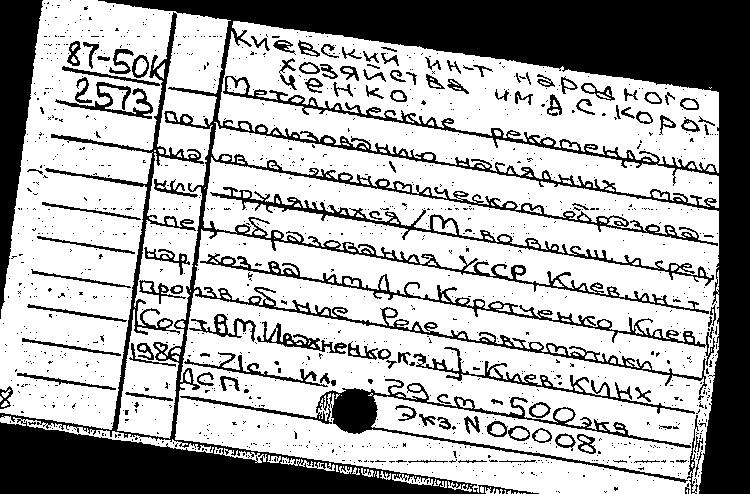 87-50К
2573
Киевский ин-т народного
хозяйства им. Д.С. Корот-
ченко.
Методические рекомендации
по использованию наглядных мате
риалов в экономическом образова-
нии трудящихся / М-во высш. и сред.
спец. образования УССР, Киев. ин-т
нар. хоз-ва им. Д.С. Коротченко, Киев.
произв. об-ние „Реле и автоматики";
[Сост. В.М. Ивахненко, к.э.н.]. - Киев: КИНХ,
1986. - 71с.: ил. ; 29 см. - 500 экз.
ДСП. Экз. N 00008.
8